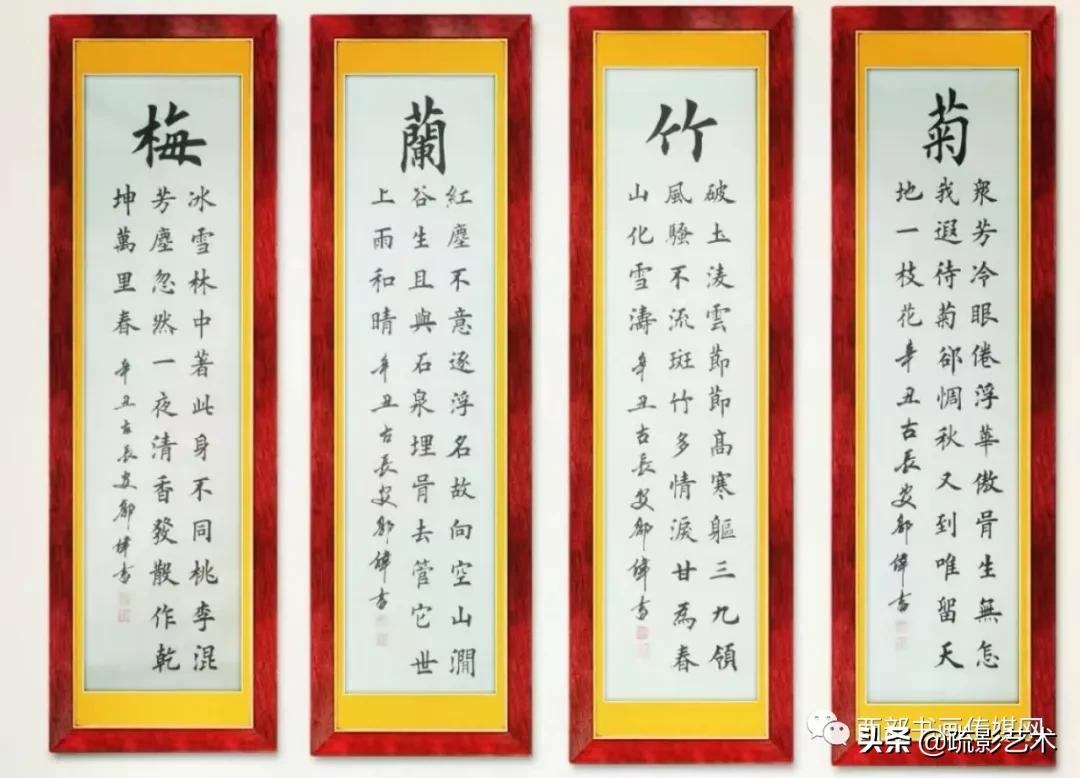 梅
冰雪林中著此身不同桃李混
芳塵忽然一夜清香發散作乾
坤萬里春 辛丑古長安書
蘭
紅塵不意逐浮名故向空山澗
谷生且與石泉埋骨去管它世
上雨和晴 辛丑古長安書
竹
破土淩雲節節高寒軀三九領
風騷不流斑竹多情淚甘為春
山化雪濤 辛丑古長安書
菊
衆芳冷眼倦浮華傲骨生無怎
我遐待菊郤惆秋又到唯留天
地一枝花 辛丑古長安書
西部书画传媒网
头条 @疏影艺术